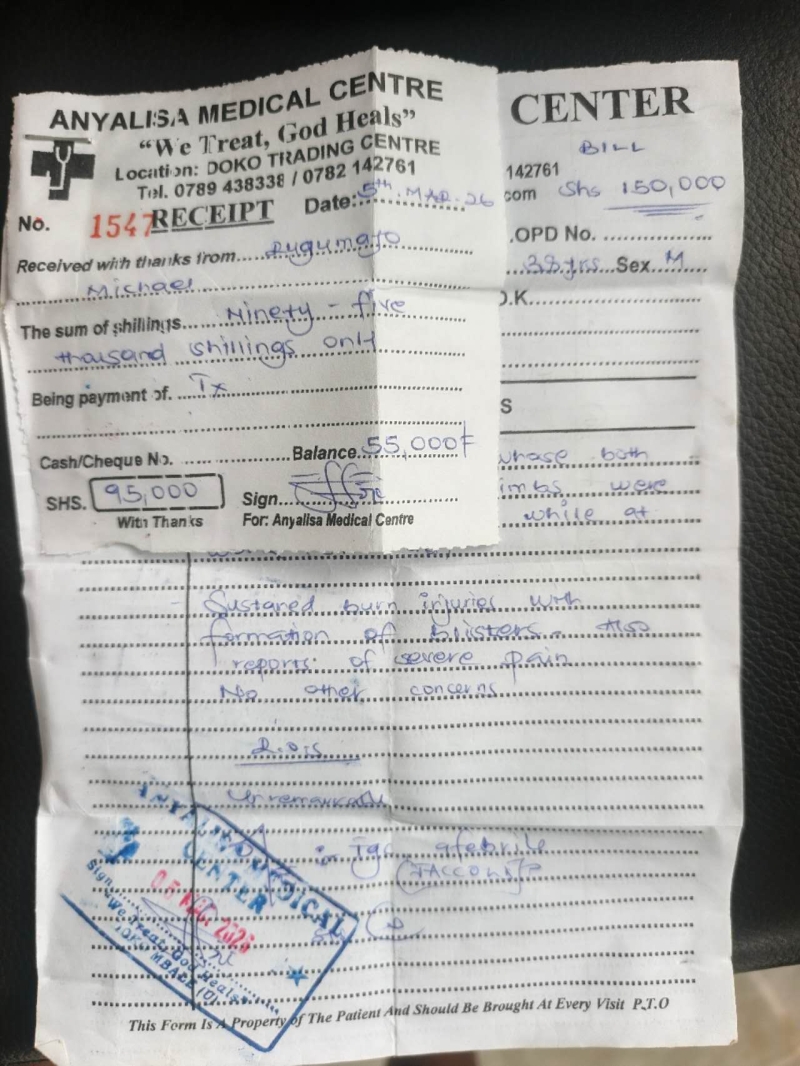 ANYALISA MEDICAL CENTRE
"We Treat, God Heals"
Location: DOKO TRADING CENTRE
Tel. 0789 438338 / 0782 142761
No. 1547 RECEIPT Date: 5th. MAR. 26
Received with thanks from
Michael
The sum of shillings Ninety - five
thousand shillings only
Being payment of. Tx
Cash/Cheque No. Balance 55,000/=
SHS. 95,000 Sign
With Thanks For: Anyalisa Medical Centre
CENTER
BILL
142761
com Shs 150,000
.OPD No.
38yrs Sex M
O.K
S
whose both
limbs were
while at
Sustained burn injuries with
formation of blisters. Also
reports of severe pain
No other concerns
R.O.S
Unremarkable
afebrile
ANYALISA MEDICAL
CENTER
05 2026
Sign
"We Treat, God Heals"
DOKO MBALE (U)
This Form Is A Property of The Patient And Should Be Brought At Every Visit P.T.O